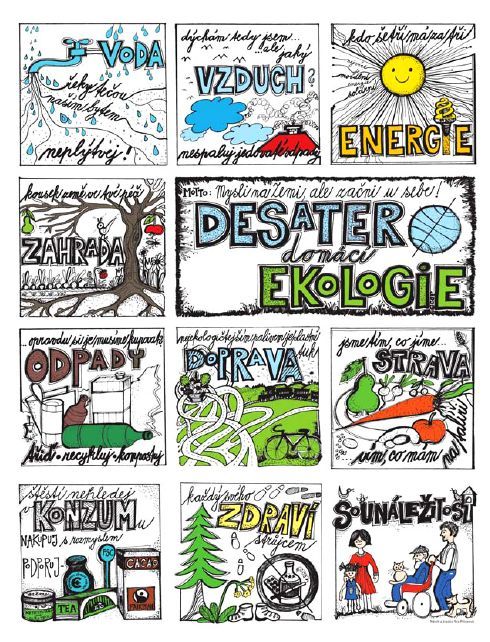 VODA
řeky tečou
naším bytem
neplýtvej!
dýchám tedy jsem...
...ale jaký
VZDUCH?
nespaluj jedovaté odpady
kdo šetří má za tři
ENERGIE
kousek země ve tvé péči
ZAHRADA
MOTTO: Mysli na Zemi, ale začni u sebe!
DESATERO
domácí
EKOLOGIE
...opravdu si je musíme kupovat?
ODPADY
Třiď • recykluj • kompostuj
nejekologičtějším palivem je vlastní
tuk!
DOPRAVA
jsme tím, co jíme...
STRAVA
vím, co mám
na talíři
štěstí nehledej
v KONZUMu
NAKUPUJ
s rozmyslem
PODPORUJ
FSC
CACAO
TEA
FAIRTRADE
každý svého
ZDRAVÍ
strůjcem
SOUNÁLEŽITOST